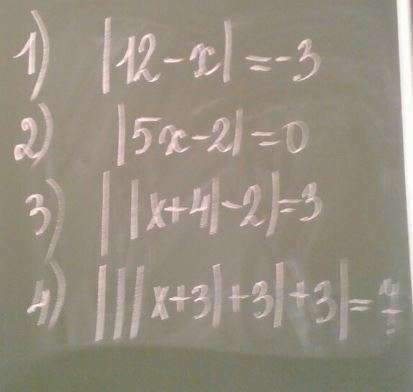 1) |12-x|=-3
2) |5x-2|=0
3) ||x+4|-2|=3
4) |||x+3|+3|+3|=